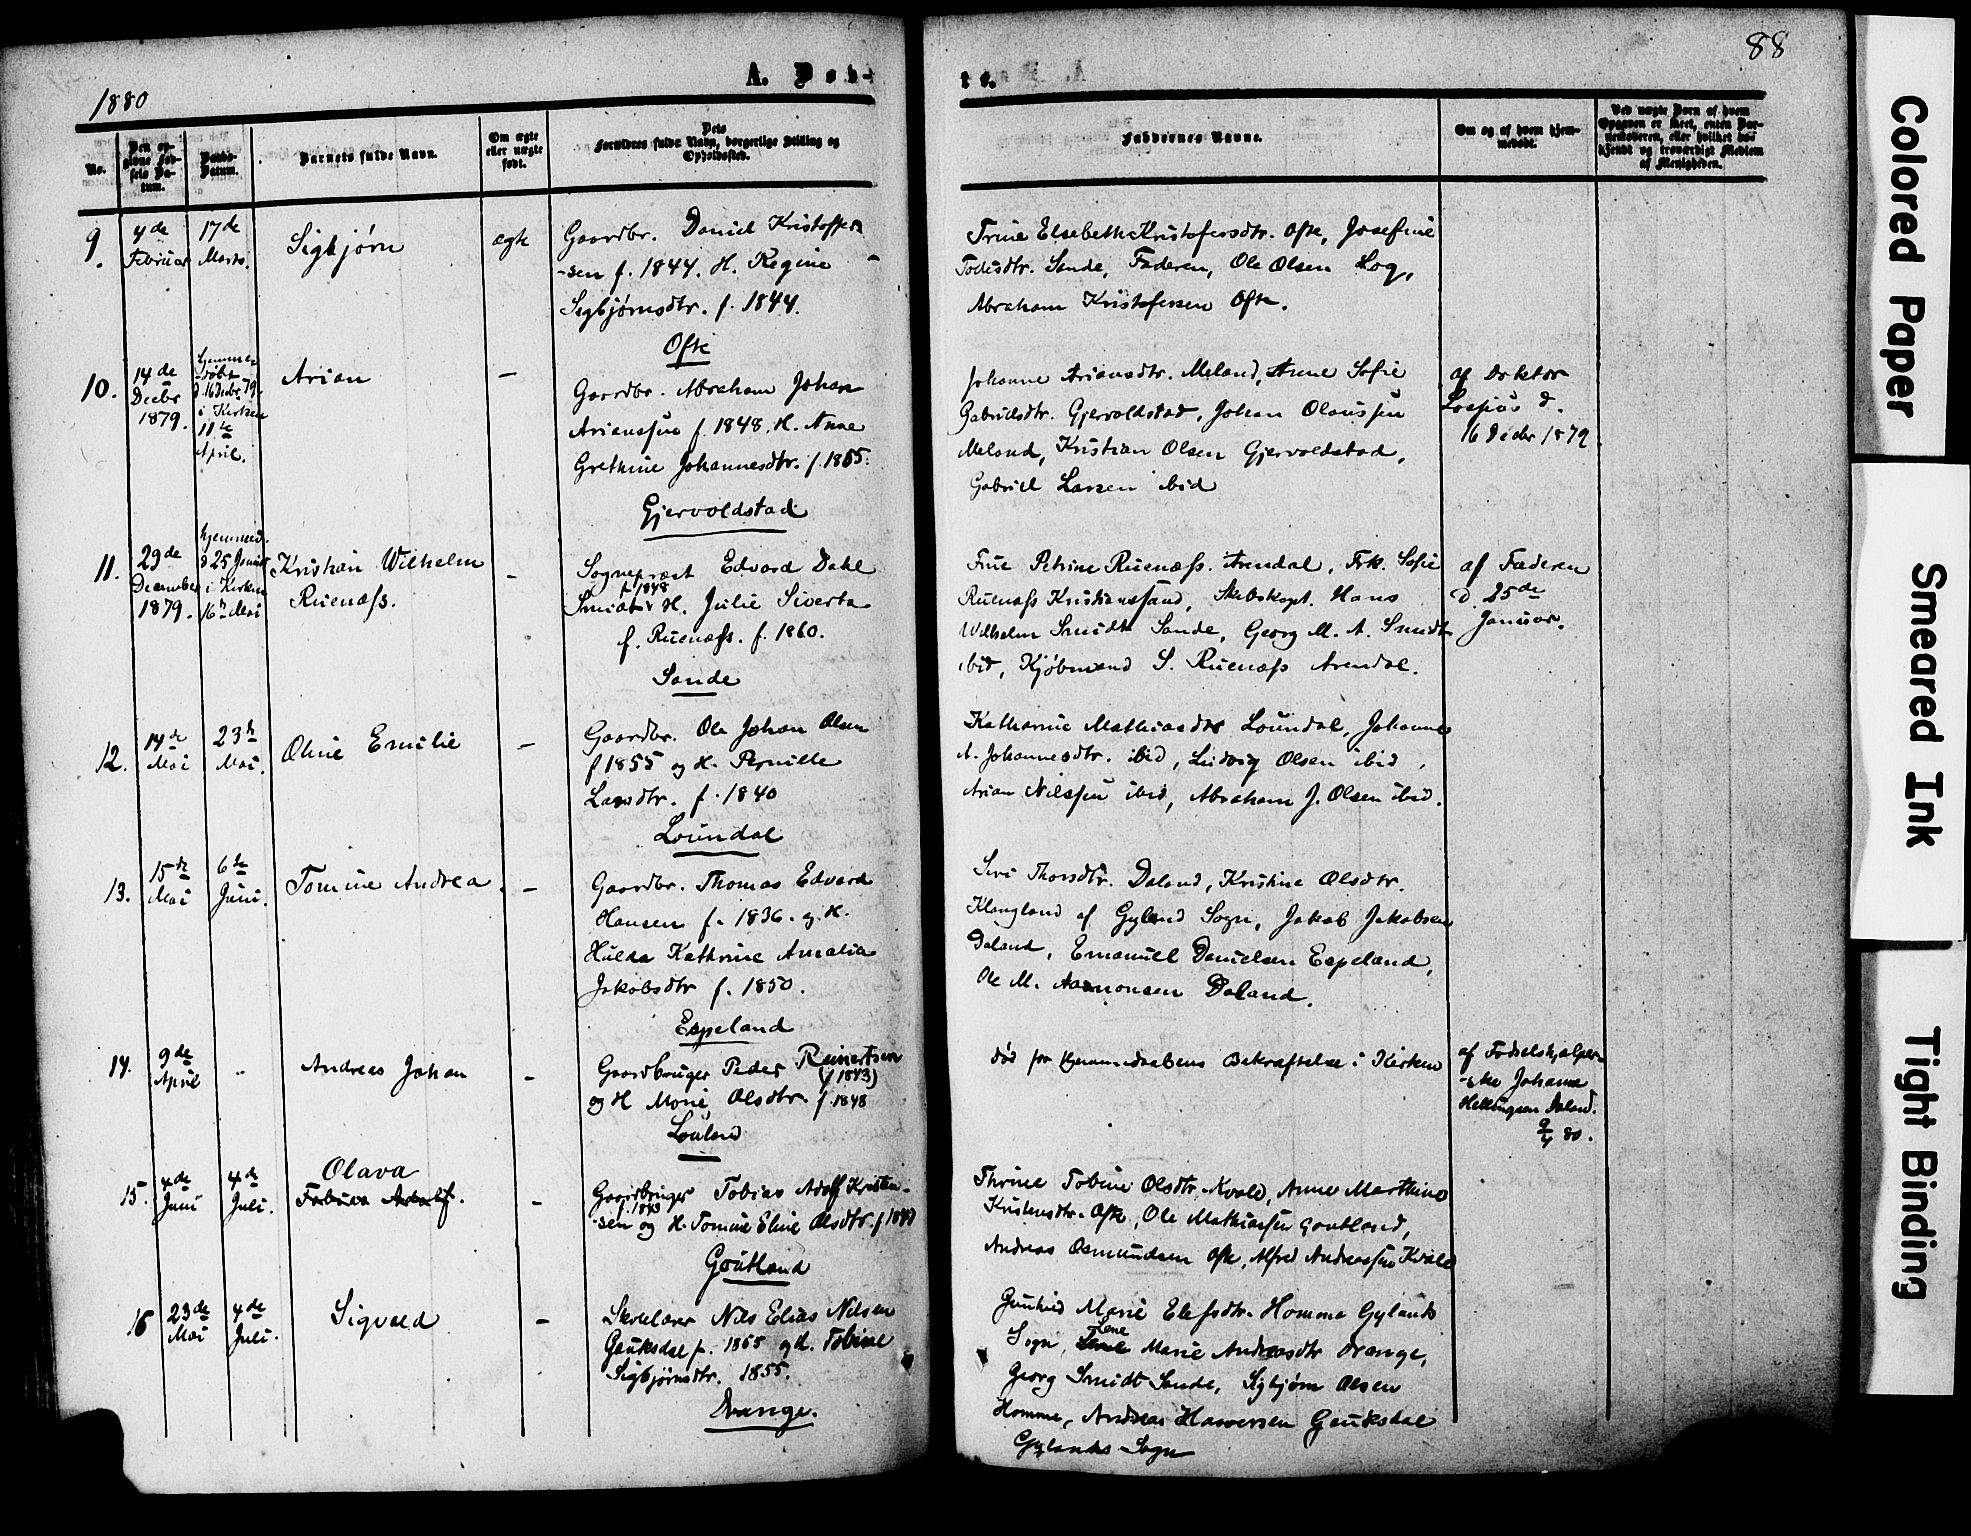 88
1880
A. Døb-
te.
No.
Den op-
givne Fød-
sels Da-
tum.
Daabs-
Datum.
Barnets fulde Navn.
Om ægte
eller uægte
født.
Dets
Forældres fulde Navn, borgerlige Stilling og
Opholdssted.
Faddernes Navne.
Om og af hvem hjem-
medøbt.
Ved uægte Børn af hvem
Opgaven er skeet, enten Bar-
nemoderen, eller hvilket be-
kjendt og troværdigt Medlem
af Menigheden.
9.
4de
Februar
17de
Marts.
Sigbjørn
ægte
Gaardbr. Daniel Kristoffer
-sen f. 1844. H. Regine
Sigbjørnsdtr. f. 1844.
Ofte
Trine Elsebeth Kristofersdtr. Ofte, Josefine
Todisdtr. Sande, Faderen, Ole Olsen Log,
Abraham Kristofersen Ofte.
10.
14de
Decbr
1879.
hjemme-
døbt
d. 16 Decbr 79.
i Kirken
11te
April.
Arian
—
Gaardbr. Abraham Johan
Arianssen f. 1848. H. Anne
Grethine Johannesdtr. f. 1855.
Gjervoldstad
Johanne Ariansdtr. Meland, Anne Sofie
Gabrielsdtr. Gjervoldstad, Johan Olaussen
Meland, Kristian Olsen Gjervoldstad,
Gabriel Larsen ibid
af Doktor
d.
16 Decbr 1879
11.
29de
December
1879.
hjemmed.
d 25 Januar
i Kirken
16de Mai
Kristian Wilhelm
Ruenæss.
—
Sognepræst Edvard Dahl
f 1848
Smidt & H. Julie Siverta
f. Ruenæss. f. 1860.
Sande
Frue Petrine Ruenæss. Arendal, Frk. Sofie
Ruenæss Kristianssand, Skibskapt. Hans
Wilhelm Smidt Sande, Georg M. A. Smidt
ibid, Kjøbmand S. Ruenæss Arendal.
af Faderen
d. 25de
Januar.
12.
14de
Mai
23de
Mai.
Oline Emilie
—
Gaardbr. Ole Johan Olsen
f 1855 og H. Pernille
Larsdtr. f. 1840
Loundal
Katharine Mathiasdtr Loundal, Johanne
A. Johannesdtr. ibid, Ludvig Olsen ibid,
Arian Nilssen ibid, Abraham J. Olsen ibid.
13.
15de
Mai
6te
Juni.
Tomine Andrea
—
Gaardbr. Thomas Edvard
Hansen f. 1836. og H.
Hulda Kathrine Amalia
Jakobsdtr f. 1850.
Espeland
Siri Thorsdtr. Daland, Kristine Olsdtr.
Klungland af Gyland Sogn, Jakob Jakobsen
Daland, Emanuel Danielsen Espeland,
Ole M. Aamonsen Daland.
14.
9de
April
"
Andreas Johan
—
Gaardbruger Peder Reinertsen
(f 1843)
og H Marie Olsdtr. f. 1848
Louland
død før Hjemmedaabens Bekræftelse i Kirken
af Fødselshjælper-
-ske Johanne
Hellingsen Daland.
9/4 80.
15.
4de
Juni
4de
Juli.
Olava
—
Gaardbruger Tobias Adolf Kristen-
f. 1843
-sen og H. Tomine Eline Olsdtr. f 1843
Goutland
Thrine Tobine Olsdtr. Kvale, Anne Marthine
Kristensdtr. Ofte, Ole Mathiassen Goutland,
Andreas Osmundsen Ofte, Alfred Andreassen Kvale
16
23de
Mai
4de
Juli.
Sigvald
—
Skolelærer Nils Elias Nilsen
Gauksdal f. 1855 og H. Tobine
Sigbjørnsdtr. 1855.
Drange.
Gunhild Marie Elefsdtr. Homme Gylands
Lene
Sogn, Marie Andreasdtr Drange,
Georg Smidt Sande, Sigbjørn Olsen
Homme, Andreas Haaversen Gauksdal
Gylands Sogn
Colored Paper
Smeared Ink
Tight Binding